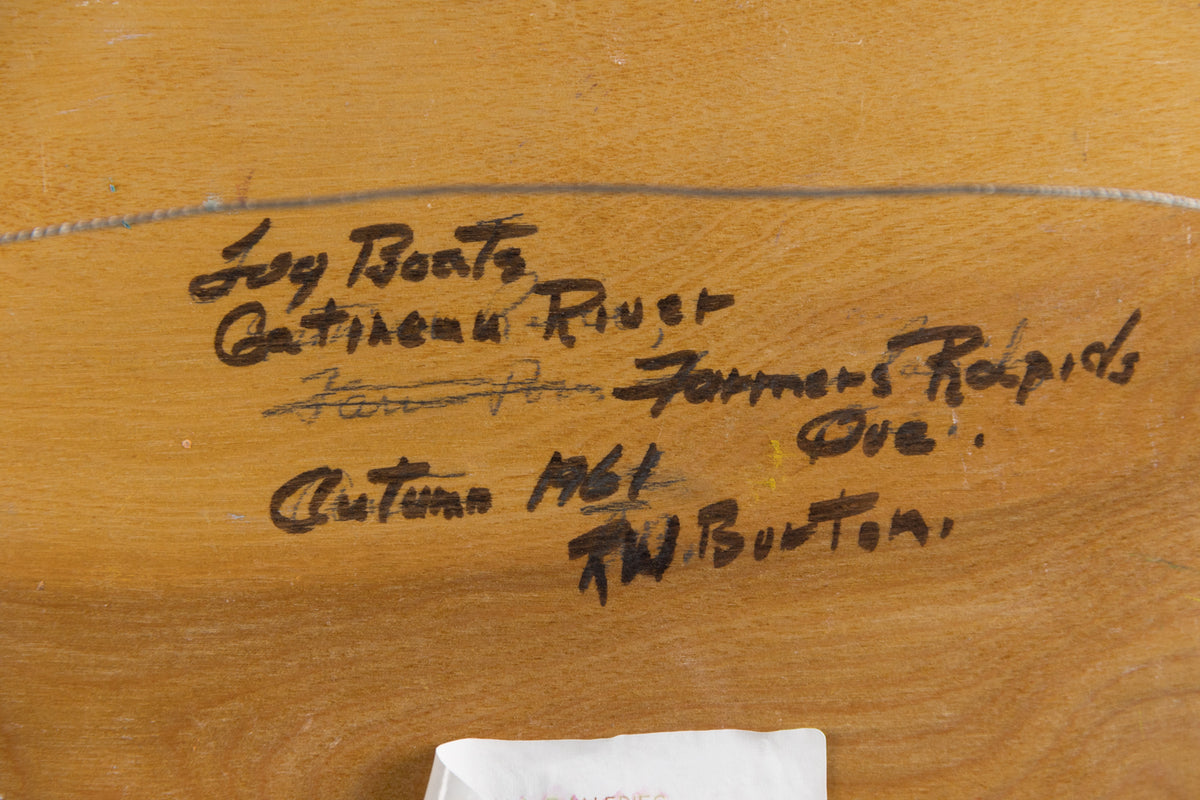 Log Boats
Gatineau River,
Farmers Rapids
Que.
Autumn 1961
R.W. Burton.
ALLERIES